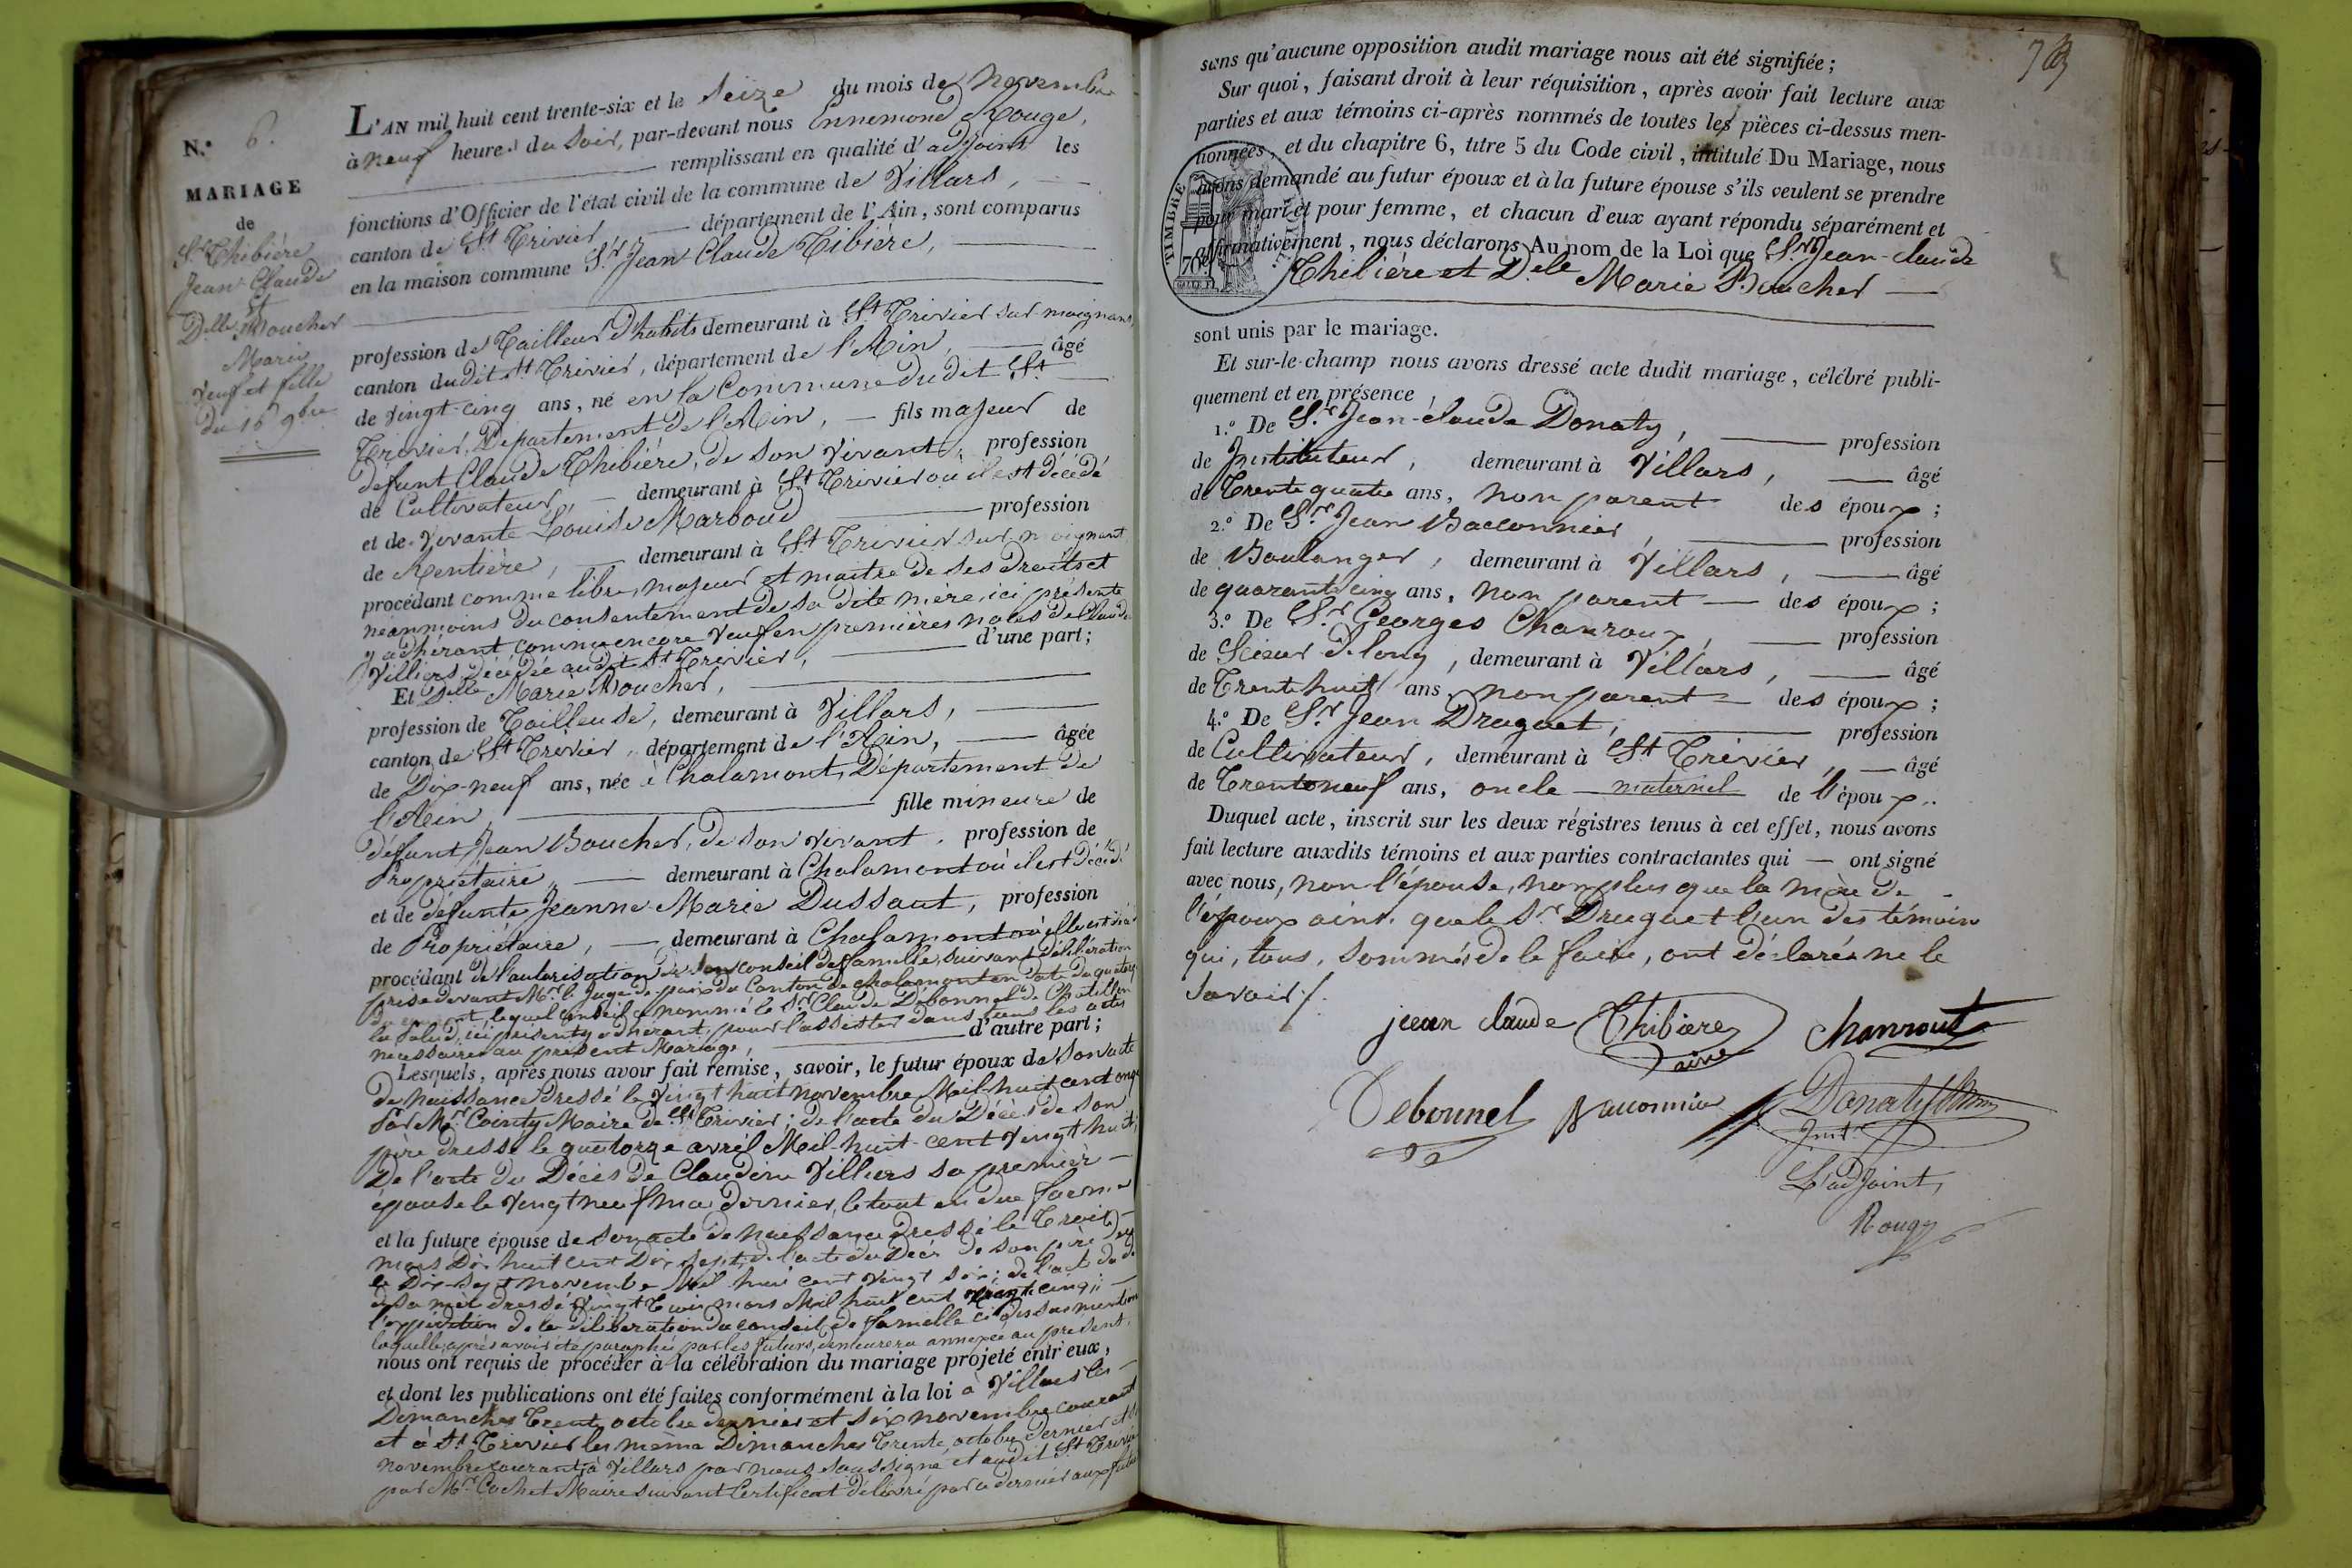 N.° 6.
MARIAGE
de
Sr. Thibière
Jean-Claude
Et
Dlle. Boucher
Marie
veuf et fille
du 16 9bre
L'AN mil huit cent trente-six et le Seize du mois de Novembre
à neuf heures du soir, par-devant nous Ennemond Rouge,
remplissant en qualité d'adjoint les
fonctions d'Officier de l'état civil de la commune de Villars,
canton de St. Trivier, département de l'Ain, sont comparus
en la maison commune Sr. Jean Claude Tibière,
profession de Tailleur d'habits demeurant à St. Trivier sur moignans,
canton dudit St. Trivier, département de l'Ain, âgé
de vingt-cinq ans, né en la Commune dudit St.
Trivier, Département de l'Ain, fils majeur de
défunt Claude Thibière, de son vivant, profession
de Cultivateur, demeurant à St. Trivier où il est décédé
et de vivante Louise Marboud profession
de Rentière, demeurant à St. Trivier sur moignant
procédant comme libre, majeur et maître de ses droits et
néanmoins du consentement de sa dite mère, ici présente
y adhérant comme encore veuf en premières noces de Claudine
Villiers, décédée audit St. Trivier, d'une part;
Et Delle. Marie Boucher,
profession de Tailleuse, demeurant à Villars,
canton de St. Trivier, département de l'Ain, âgée
de Dix-neuf ans, née à Chalamont, Département de
l'Ain, fille mineure de
défunt Jean Boucher, de son vivant, profession de
Propriétaire, demeurant à Chalamont où il est décédé
et de défunte Jeanne Marie Dussaut, profession
de Propriétaire, demeurant à Chalamont où elle est
procédant de l'autorisation de son conseil de famille, suivant délibération
prise devant Mr. le Juge de paix du Canton de Chalamont en date du quatorze
du courant, lequel conseil a nommé le Sr. Claude Debonnel de Chatillon
la Palud, ici présent y adhérant, pour l'assister dans tous les actes
nécessaires au présent Mariage, d'autre part;
Lesquels, après nous avoir fait remise, savoir, le futur époux de Son acte
de naissance dressé le Vingt huit novembre Mil-huit cent onze
Par Mr. Cointy Maire de St. Trivier; de l'acte du Décès de son
père dressé le quatorze avril Mil-huit-cent Vingt huit;
De l'acte du Décès de Claudine Villiers sa premier
épouse le Vingt neuf mai dernier, le tout en due forme
et la future épouse de son acte de naissance dressé le Trois
mars Dix huit cent Dix sept; de l'acte du Décès de son père
le Dix-Sept novembre Mil huit cent vingt six; de l'acte du
de sa mère dressé Vingt trois mars Mil huit cent trente cinq;
l'expédition de la délibération du conseil de famille ci-dessus mention
laquelle, après avoir été paraphée par les futurs, demeurera annexée au présent,
nous ont requis de procéder à la célébration du mariage projeté entr'eux,
et dont les publications ont été faites conformément à la loi à Villars les
Dimanches Trente octobre dernier et six novembre courant
et à St. Trivier les même Dimanches Trente octobre dernier et
novembre courant, à Villars par nous soussigné et audit St. Trivier
par Mr. Cochet Maire suivant Certificat délivré par ce dernier aux futurs
sans qu'aucune opposition audit mariage nous ait été signifiée;
Sur quoi, faisant droit à leur réquisition, après avoir fait lecture aux
parties et aux témoins ci-après nommés de toutes les pièces ci-dessus men-
tionnées, et du chapitre 6, titre 5 du Code civil, intitulé Du Mariage, nous
avons demandé au futur époux et à la future épouse s'ils veulent se prendre
pour mari et pour femme, et chacun d'eux ayant répondu séparément et
affirmativement, nous déclarons Au nom de la Loi que Sr. Jean-claude
Thibière et Delle Marie Boucher
TIMBRE
70c
sont unis par le mariage.
Et sur-le-champ nous avons dressé acte dudit mariage, célébré publi-
quement et en présence
1.° De Sr. Jean-claude Donaty, profession
de Instituteur, demeurant à Villars, âgé
de Trente quatre ans, non parent des époux;
2.° De Sr. Jean Bacconnier, profession
de Boulanger, demeurant à Villars, âgé
de quarante cinq ans, non parent des époux;
3.° De Sr. Georges Chanroux, profession
de Scieur de long, demeurant à Villars, âgé
de Trente huit ans, non parent des époux;
4.° De Sr. Jean Draguet, profession
de Cultivateur, demeurant à St. Trivier, âgé
de Trente neuf ans, oncle maternel de l'époux.
Duquel acte, inscrit sur les deux régistres tenus à cet effet, nous avons
fait lecture auxdits témoins et aux parties contractantes qui ont signé
avec nous, non l'épouse, non plus que la mère de
l'époux ainsi que le Sr. Druguet l'un des témoins
qui, tous, sommés de le faire, ont déclarés ne le
savoir /.
jeean claude Thibiere
aine
chanrout
Debonnel
Bacconnier
Donaty
Instr.
L'adjoint,
Rouge